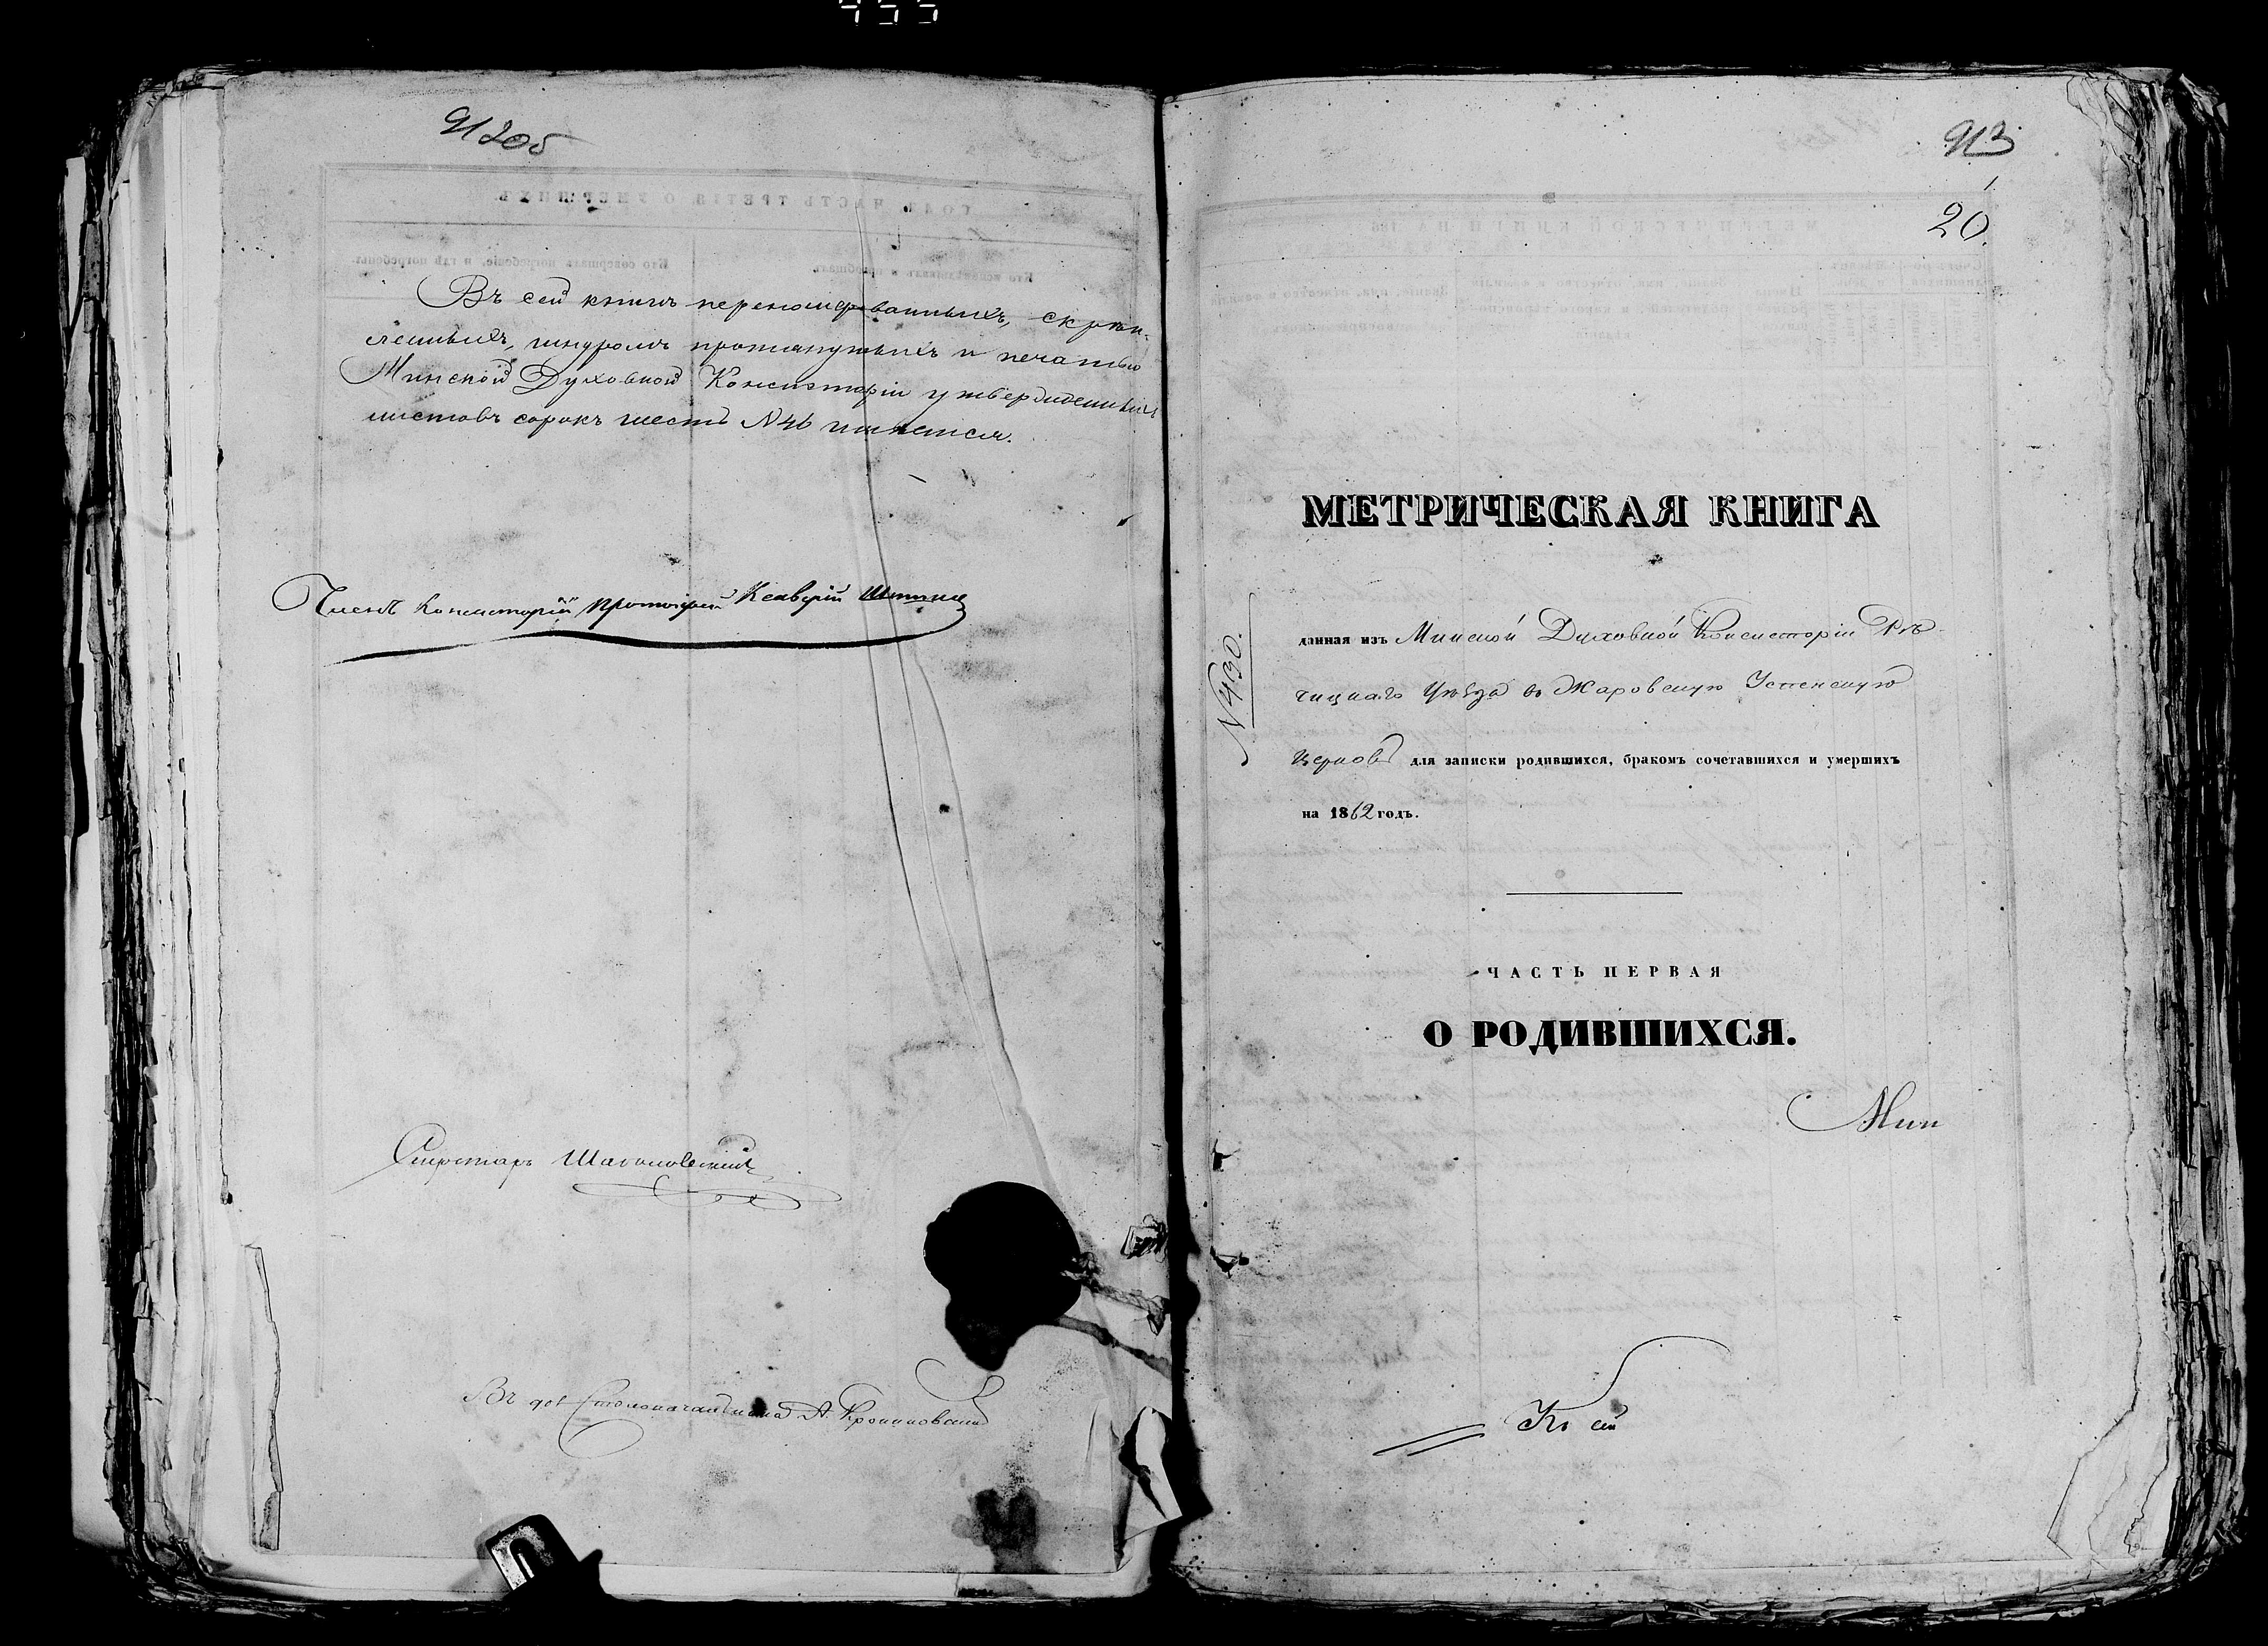 455
912об
Въ сей книгѣ перенумерованныхъ, скрѣп-
ленныхъ, шнуромъ протянутыхъ и печатью
Минской Духовной Консисторіи утвержденныхъ
листовъ сорокъ шесть N46 имѣется.
Членъ Консисторіи Протоіерей Ксаверій
Секретарь
Въ дол Столоначальника А.
913
20.
МЕТРИЧЕСКАЯ КНИГА
N430.
данная изъ Минской Духовной Консисторіи Рѣ-
чицкаго Уѣзда въ Жаровскую Успенскую
Церковь для записки родившихся, бракомъ сочетавшихся и умершихъ
на 1862 годъ.
ЧАСТЬ ПЕРВАЯ
О РОДИВШИХСЯ.
Мин
Къ сей